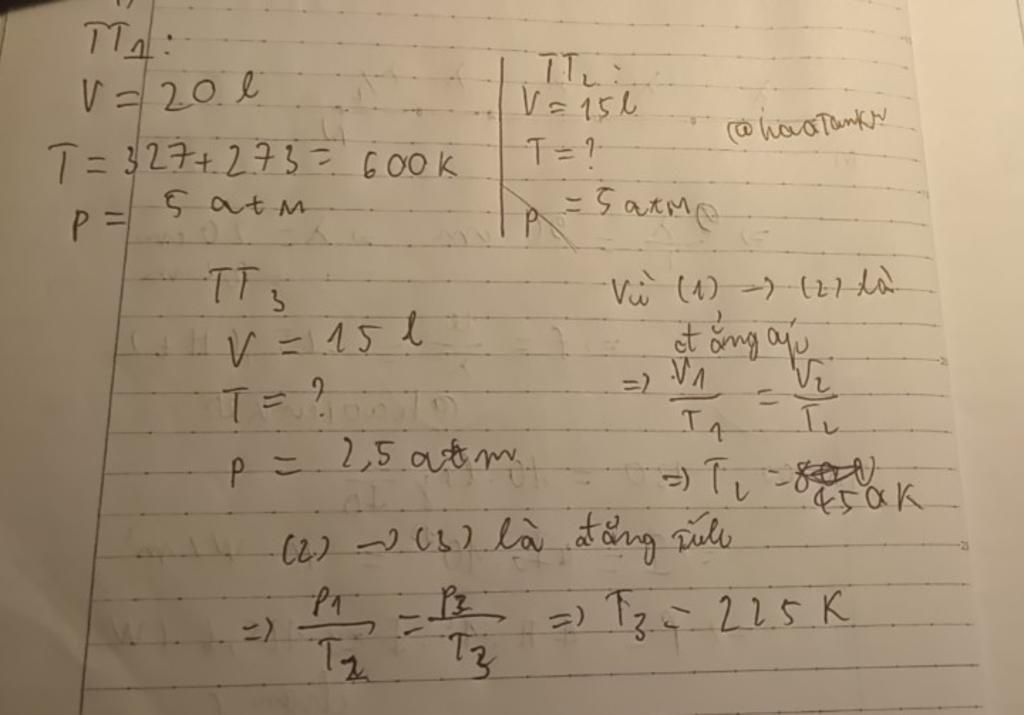 TT₁:
V = 20 l
T = 327 + 273 = 600 K
P = 5 atm
TT₂:
V = 15 l
T = ?
P = 5 atm
TT₃
V = 15 l
T = ?
P = 2,5 atm
Vì (1) → (2) là
đẳng áp
=> V₁/T₁ = V₂/T₂
=> T₂ = 450 K
(2) → (3) là đẳng tích
=> P₁/T₂ = P₃/T₃ => T₃ = 225 K